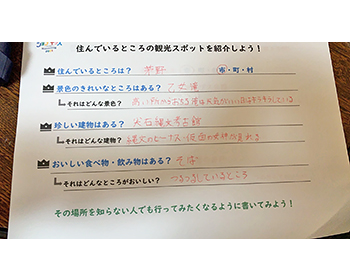 住んでいるところの観光スポットを紹介しよう！
住んでいるところは？ 茅野 市・町・村
景色のきれいなところはある？ 乙女滝
それはどんな景色？
珍しい建物はある？ 尖石縄文考古館
それはどんな建物？ 縄文のビーナス・仮面の女神が見れる
おいしい食べ物・飲み物はある？ そば
それはどんなところがおいしい？ つるつるしているところ
その場所を知らない人でも行ってみたくなるように書いてみよう！